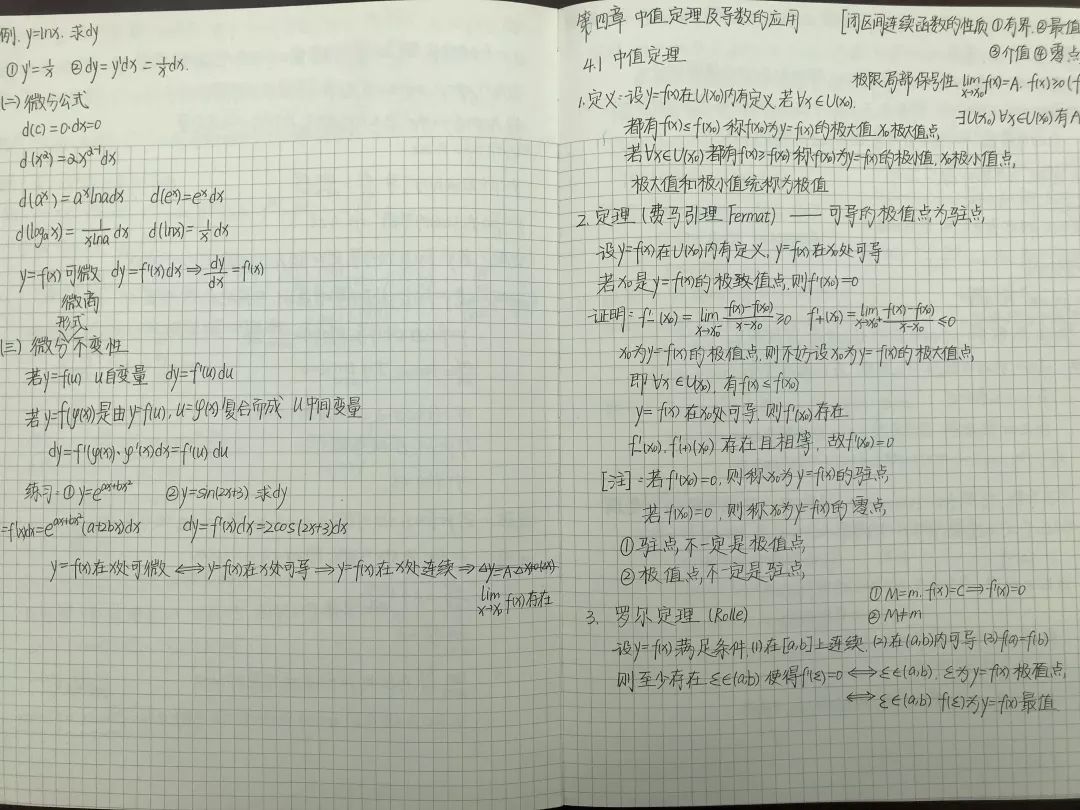 例. y=lnx. 求dy
① y'=1/x ② dy=y'dx=1/x dx.
(二) 微分公式
d(c)=0·dx=0
d(x^α)=αx^(α-1)dx
d(a^x)=a^x lna dx d(e^x)=e^x dx
d(log_a x)=1/(xlna) dx d(lnx)=1/x dx
y=f(x)可微 dy=f'(x)dx ⇒ dy/dx=f'(x)
微商
形式
(三) 微分不变性
若y=f(u) u自变量 dy=f'(u)du
若y=f(φ(x))是由y=f(u), u=φ(x)复合而成 u中间变量
dy=f'(φ(x))·φ'(x)dx=f'(u)du
练习: ① y=e^(ax+bx²) ② y=sin(2x+3) 求dy
=f'(x)dx=e^(ax+bx²)(a+2bx)dx dy=f'(x)dx=2cos(2x+3)dx
y=f(x)在x处可微 ⟺ y=f(x)在x处可导 ⇒ y=f(x)在x处连续 ⇒
lim x→x₀ f(x)存在
第四章 中值定理及导数的应用 [闭区间连续函数的性质 ①有界 ②最值
③介值 ④零点
4.1 中值定理
极限局部保号性 lim x→x₀ f(x)=A. f(x)≥0
1. 定义: 设y=f(x)在U(x₀)内有定义 若∀x∈U(x₀).
∃U(x₀) ∀x∈U(x₀)有A
都有f(x)≤f(x₀) 称f(x₀)为y=f(x)的极大值 x₀极大值点
若∀x∈U(x₀)都有f(x)≥f(x₀)称f(x₀)为y=f(x)的极小值, x₀极小值点,
极大值和极小值统称为极值
2. 定理 (费马引理 Fermat) —— 可导的极值点为驻点,
设y=f(x)在U(x₀)内有定义, y=f(x)在x₀处可导
若x₀是y=f(x)的极值点, 则f'(x₀)=0
证明: f'₋(x₀)=lim x→x₀⁻ (f(x)-f(x₀))/(x-x₀) ≥0 f'₊(x₀)=lim x→x₀⁺ (f(x)-f(x₀))/(x-x₀) ≤0
x₀为y=f(x)的极值点, 则不妨设x₀为y=f(x)的极大值点,
即∀x∈U(x₀), 有f(x)≤f(x₀)
y=f(x)在x₀处可导, 则f'(x₀)存在
f'₋(x₀), f'₊(x₀) 存在且相等, 故f'(x₀)=0
[注]: 若f'(x₀)=0, 则称x₀为y=f(x)的驻点
若f(x₀)=0, 则称x₀为y=f(x)的零点,
① 驻点, 不一定是极值点,
② 极值点, 不一定是驻点,
① M=m, f(x)=C ⇒ f'(x)=0
② M≠m
3. 罗尔定理 (Rolle)
设y=f(x)满足条件, (1)在[a,b]上连续, (2)在(a,b)内可导 (3)f(a)=f(b)
则至少存在ξ∈(a,b) 使得f'(ξ)=0 ⟺ ξ∈(a,b). ξ为y=f(x)极值点,
⟺ ξ∈(a,b) f(ξ)为y=f(x)最值